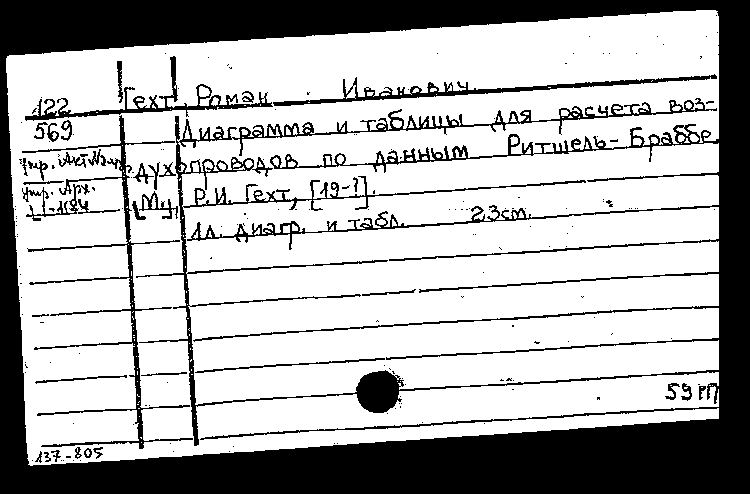 122 Гехт, Роман Иванович.
569 Диаграмма и таблицы для расчета воз-
духопроводов по данным Ритшель-Браббе.
[М.], Р.И. Гехт, [19-?].
1л. диагр. и табл. 23см.
59 РП
137-805